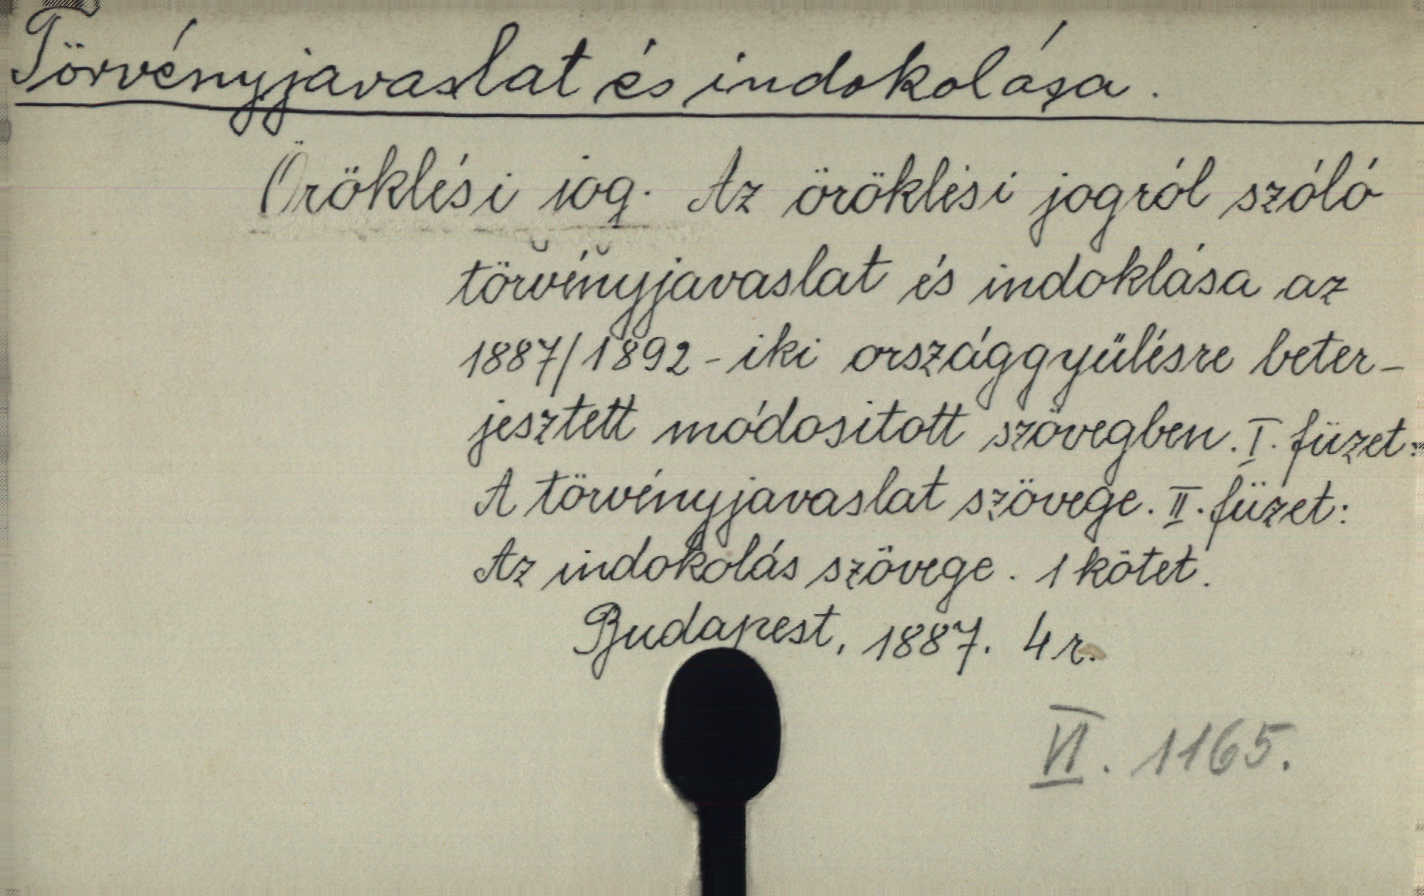 Törvényjavaslat és indokolása.
Öröklési jog. Az öröklési jogról szóló
törvényjavaslat és indoklása az
1887/1892-iki országgyülésre beter-
jesztett módositott szövegben. I. füzet:
A törvényjavaslat szövege. II. füzet:
Az indokolás szövege. 1 kötet.
Budapest, 1887. 4 r.
VI. 1165.